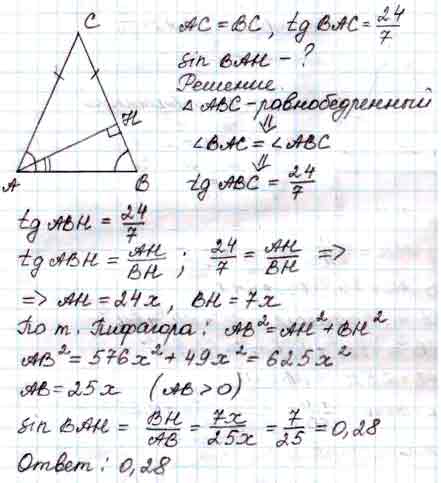 C
H
A
B
AC = BC, tg BAC = 24/7
sin BAH - ?
Решение.
△ ABC - равнобедренный
⇓
∠BAC = ∠ABC
⇓
tg ABC = 24/7
tg ABH = 24/7
tg ABH = AH/BH ; 24/7 = AH/BH =>
=> AH = 24x, BH = 7x
По т. Пифагора: AB² = AH² + BH²
AB² = 576x² + 49x² = 625x²
AB = 25x (AB > 0)
sin BAH = BH/AB = 7x/25x = 7/25 = 0,28
Ответ: 0,28